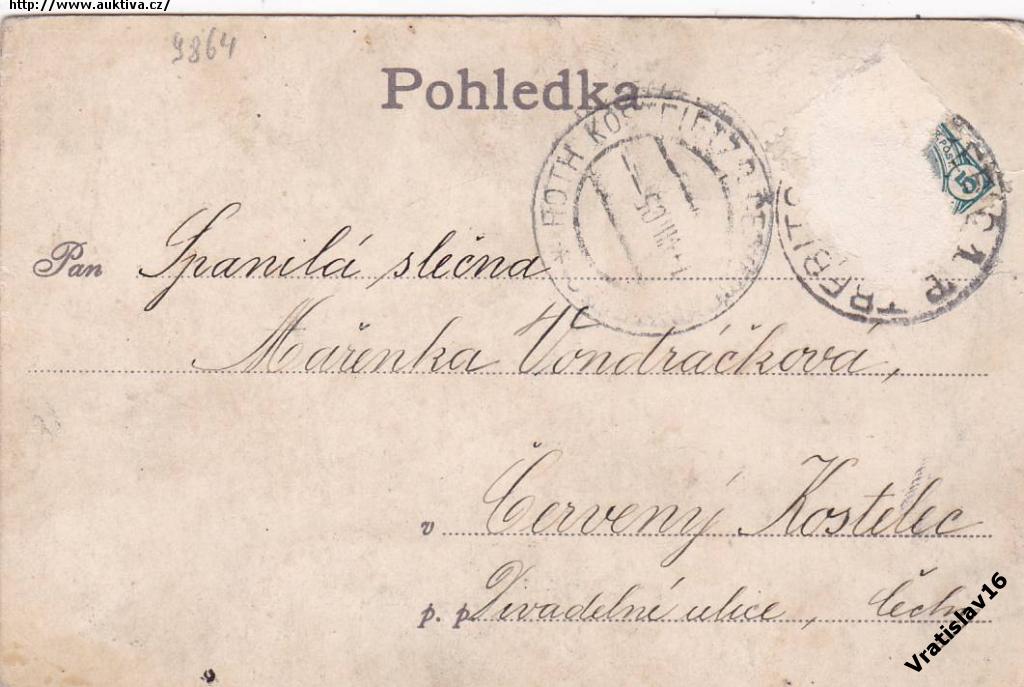 http://www.auktiva.cz/
9864
Pohledka
ROTH KOSTELETZ
5
TREBITSCH
Pan Spanilá slečna
Mařenka Vondráčková,
v Červený Kostelec
p. p. Divadelní ulice, Čechy
Vratislav16